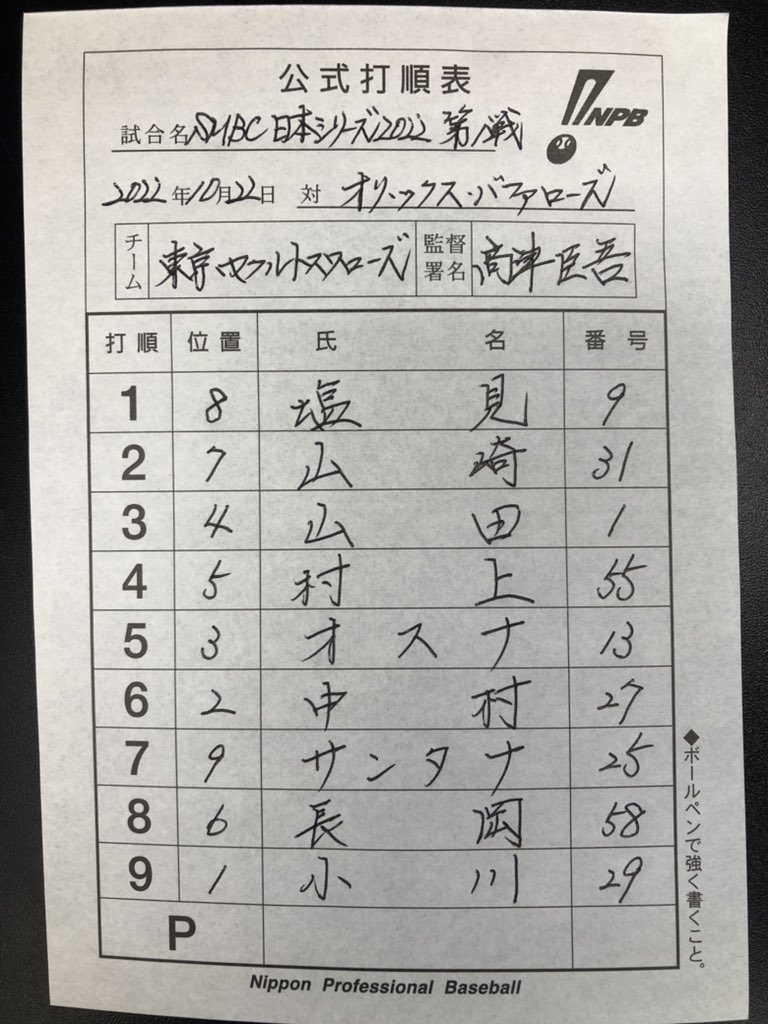 公式打順表
NPB
試合名 SMBC日本シリーズ2022 第1戦
2022年10月22日 対 オリックス・バファローズ
チーム 東京ヤクルトスワローズ 監督署名 高津臣吾
打順 位置 氏名 番号
1 8 塩見 9
2 7 山崎 31
3 4 山田 1
4 5 村上 55
5 3 オスナ 13
6 2 中村 27
7 9 サンタナ 25
8 6 長岡 58
9 1 小川 29
P
◆ボールペンで強く書くこと。
Nippon Professional Baseball